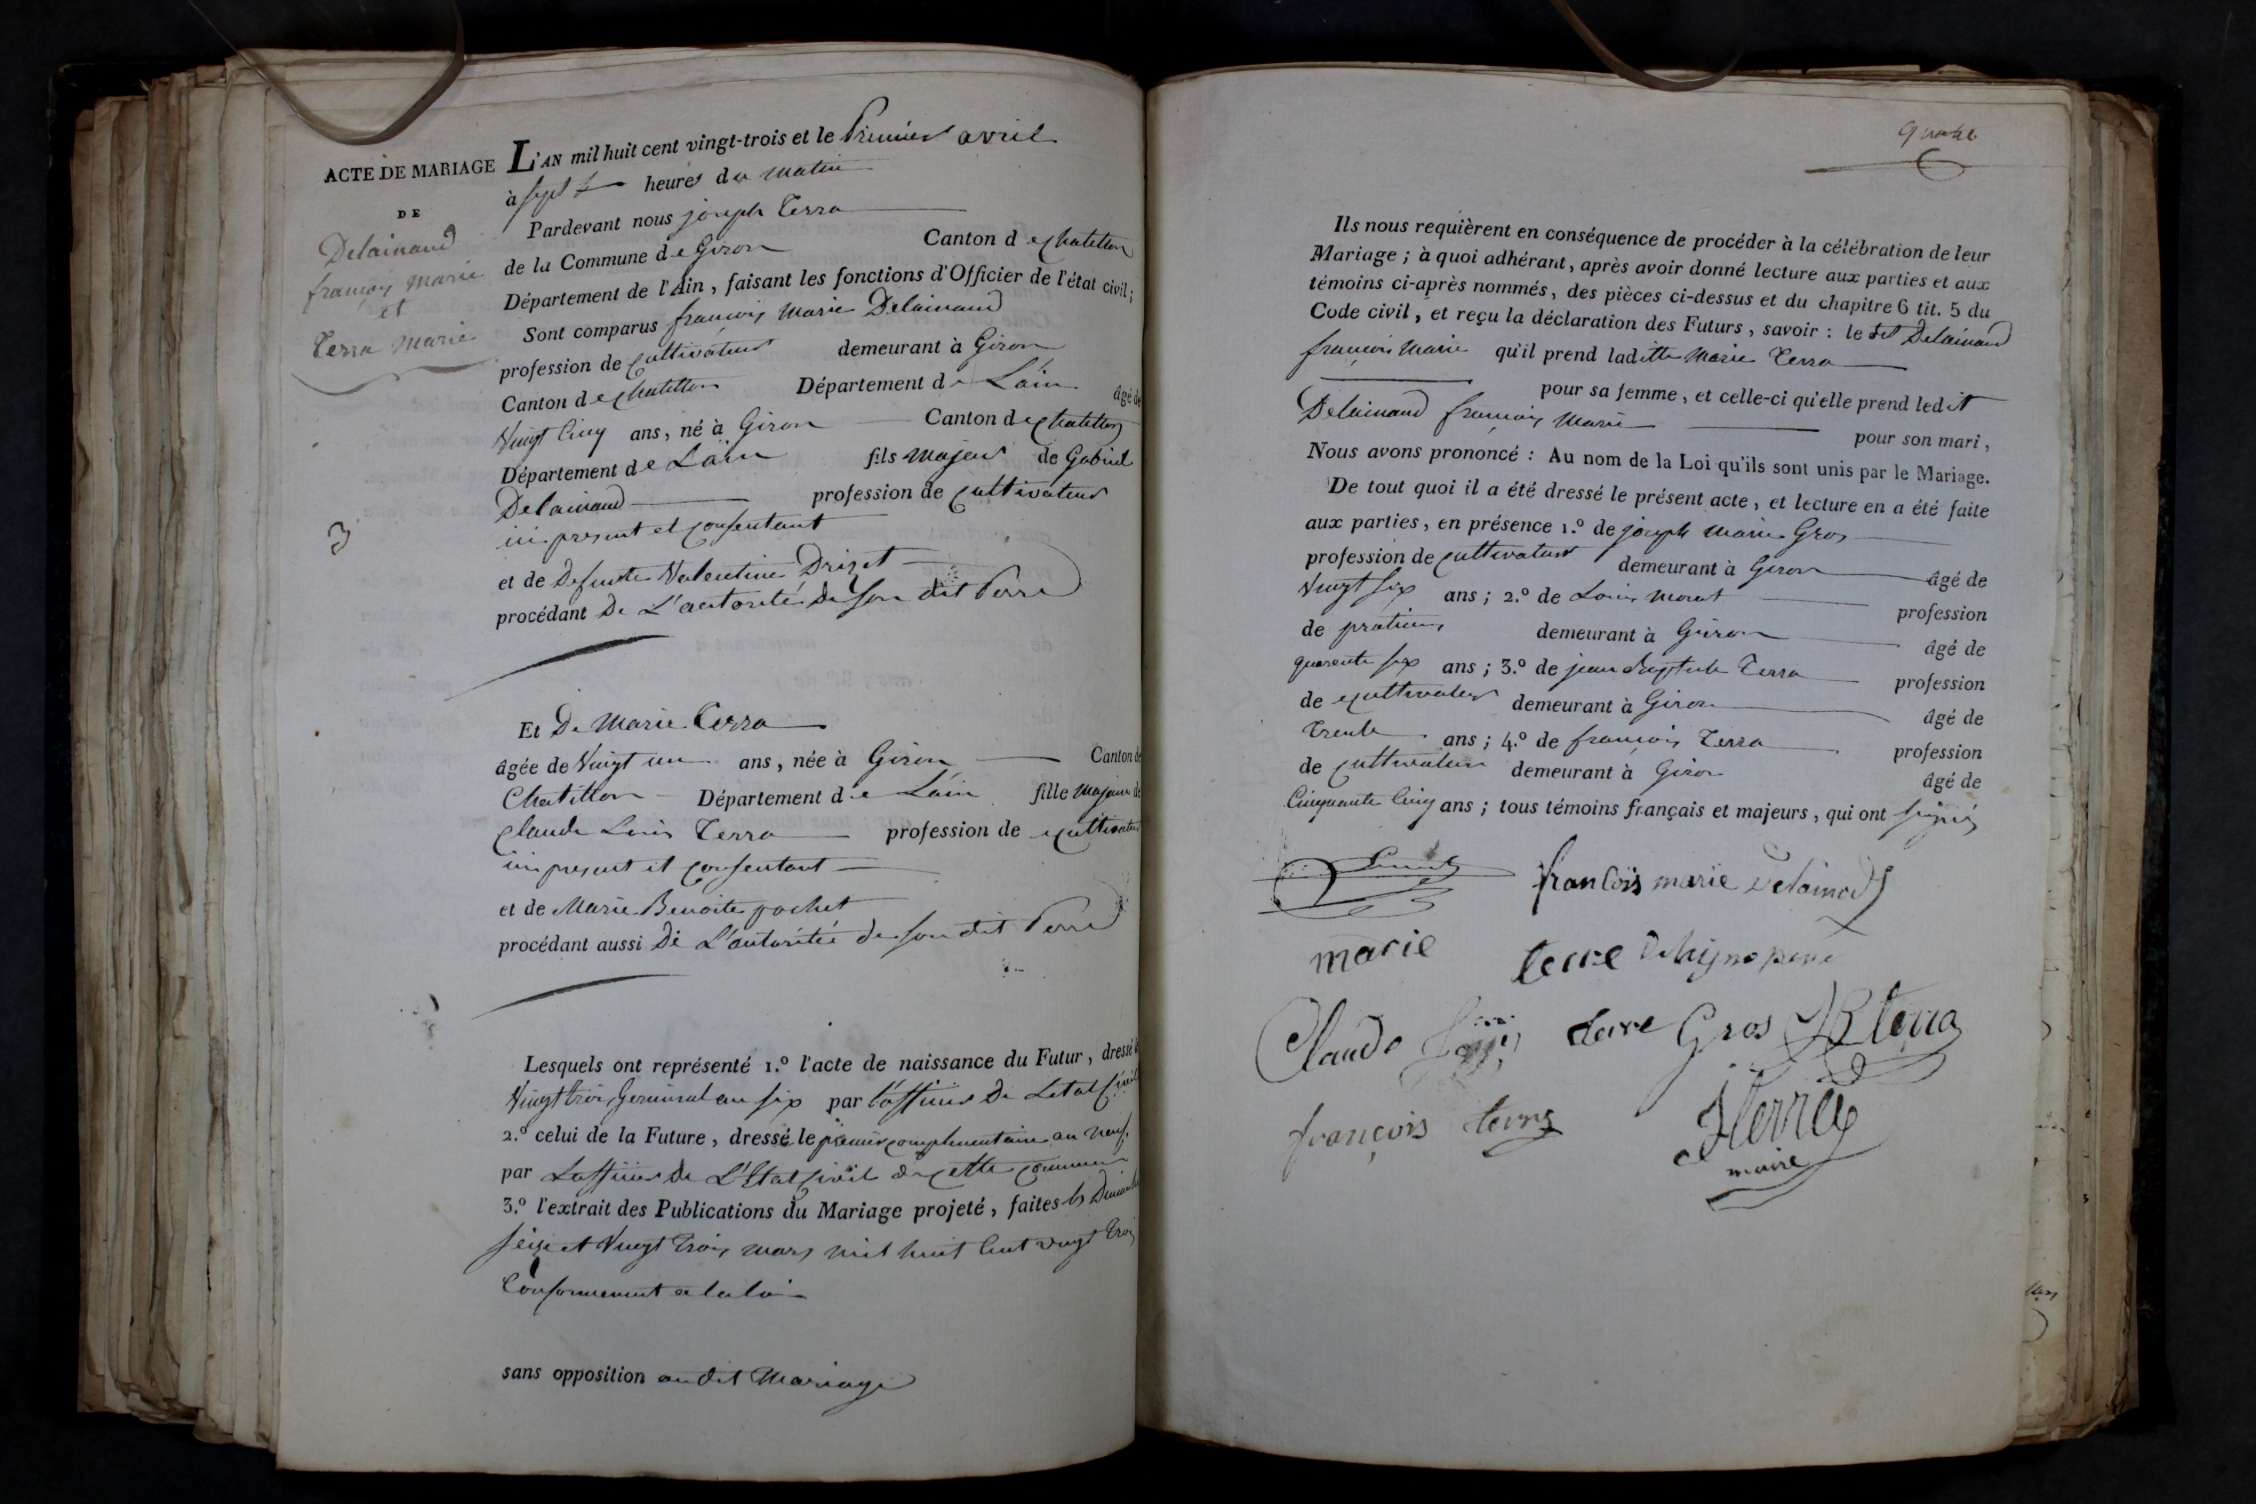 ACTE DE MARIAGE
DE
Delainaud
françois marie
et
Terra Marie
3
L'AN mil huit cent vingt-trois et le Premier avril
à sept heures du matin
Pardevant nous joseph Terra
de la Commune de Giron Canton de chatillon
Département de l'Ain, faisant les fonctions d'Officier de l'état civil;
Sont comparus françois Marie Delainaud
profession de cultivateur demeurant à Giron
Canton de chatillon Département de L'ain âgé de
Vingt Cinq ans, né à Giron Canton de chatillon
Département de L'ain fils majeur de Gabriel
Delainaud profession de cultivateur
ici present et consentant
et de Defunte Valentine Drizet
procédant De L'autorité de son dit Perre
Et De Marie Terra
âgée de Vingt un ans, née à Giron Canton de
Chatillon Département de L'ain fille majeure de
Claude Louis Terra profession de cultivateur
ici present et consentant
et de Marie Benoite pochet
procédant aussi De L'autoritée de son dit Perre
Lesquels ont représenté 1.º l'acte de naissance du Futur, dressé le
Vingt trois Germinal an six par l'officier De Letat Civil
2.º celui de la Future, dressé le premier complementaire an neuf,
par Lofficier de L'Etat Civil de cette commune
3.º l'extrait des Publications du Mariage projeté, faites les Dimanches
seize et Vingt Trois mars mil huit Cent vingt trois
Conformement a la loi
sans opposition audit Mariage
quatre
Ils nous requièrent en conséquence de procéder à la célébration de leur
Mariage; à quoi adhérant, après avoir donné lecture aux parties et aux
témoins ci-après nommés, des pièces ci-dessus et du chapitre 6 tit. 5 du
Code civil, et reçu la déclaration des Futurs, savoir: le dit Delainaud
françois Marie qu'il prend laditte Marie Terra
pour sa femme, et celle-ci qu'elle prend ledit
Delainaud françois Marie pour son mari,
Nous avons prononcé: Au nom de la Loi qu'ils sont unis par le Mariage.
De tout quoi il a été dressé le présent acte, et lecture en a été faite
aux parties, en présence 1.º de joseph Marie Gros
profession de cultivateur demeurant à Giron âgé de
Vingt six ans; 2.º de Louis Morat profession
de praticien demeurant à Giron âgé de
quarente six ans; 3.º de jean Baptiste Terra profession
de cultivateur demeurant à Giron âgé de
Trente ans; 4.º de françois Terra profession
de cultivateur demeurant à Giron âgé de
Cinquante Cinq ans; tous témoins français et majeurs, qui ont signés
francois marie Delainod
marie terre
Claude terre Gros JB terra
françois terra JTerra
maire